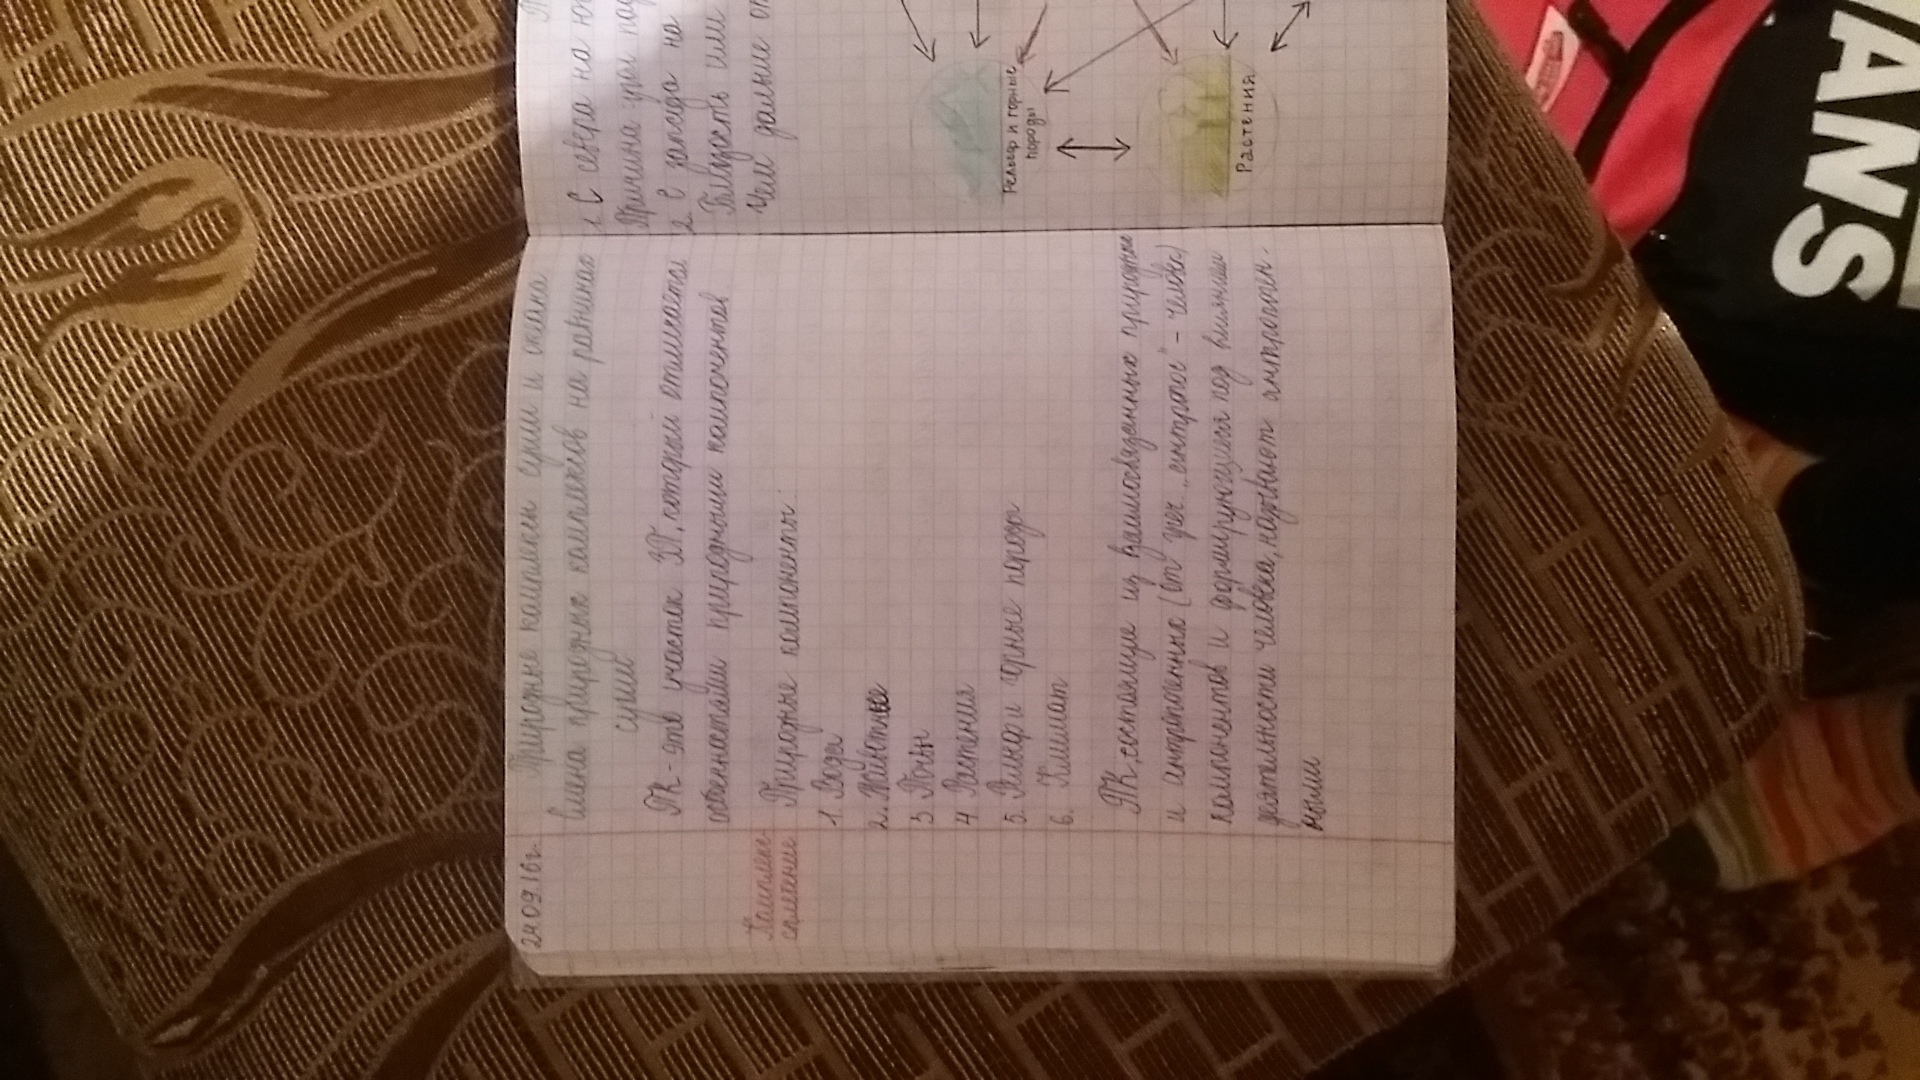 24.09.16г. Природные комплексы суши и океана.
Смена природных комплексов на равнинах
суши
ПК - это участок ЗП, который отличается
особенностями природными компонентов
Комплекс-
сплетение
Природные компоненты:
1. Вода
2. Животные
3 Почвы
4 Растения
5. Рельеф и горные породы
6. Климат
ПК, состоящие из взаимосвязанных природных
и антропогенных (от греч. „антропос" - человек)
компонентов и формирующиеся под влиянием
деятельности человека, называют антропоген-
ными
1. С севера на
Причина
2. С запада на
Близость или
Чем дальше от
Рельеф и горные
породы
Растения
ANS